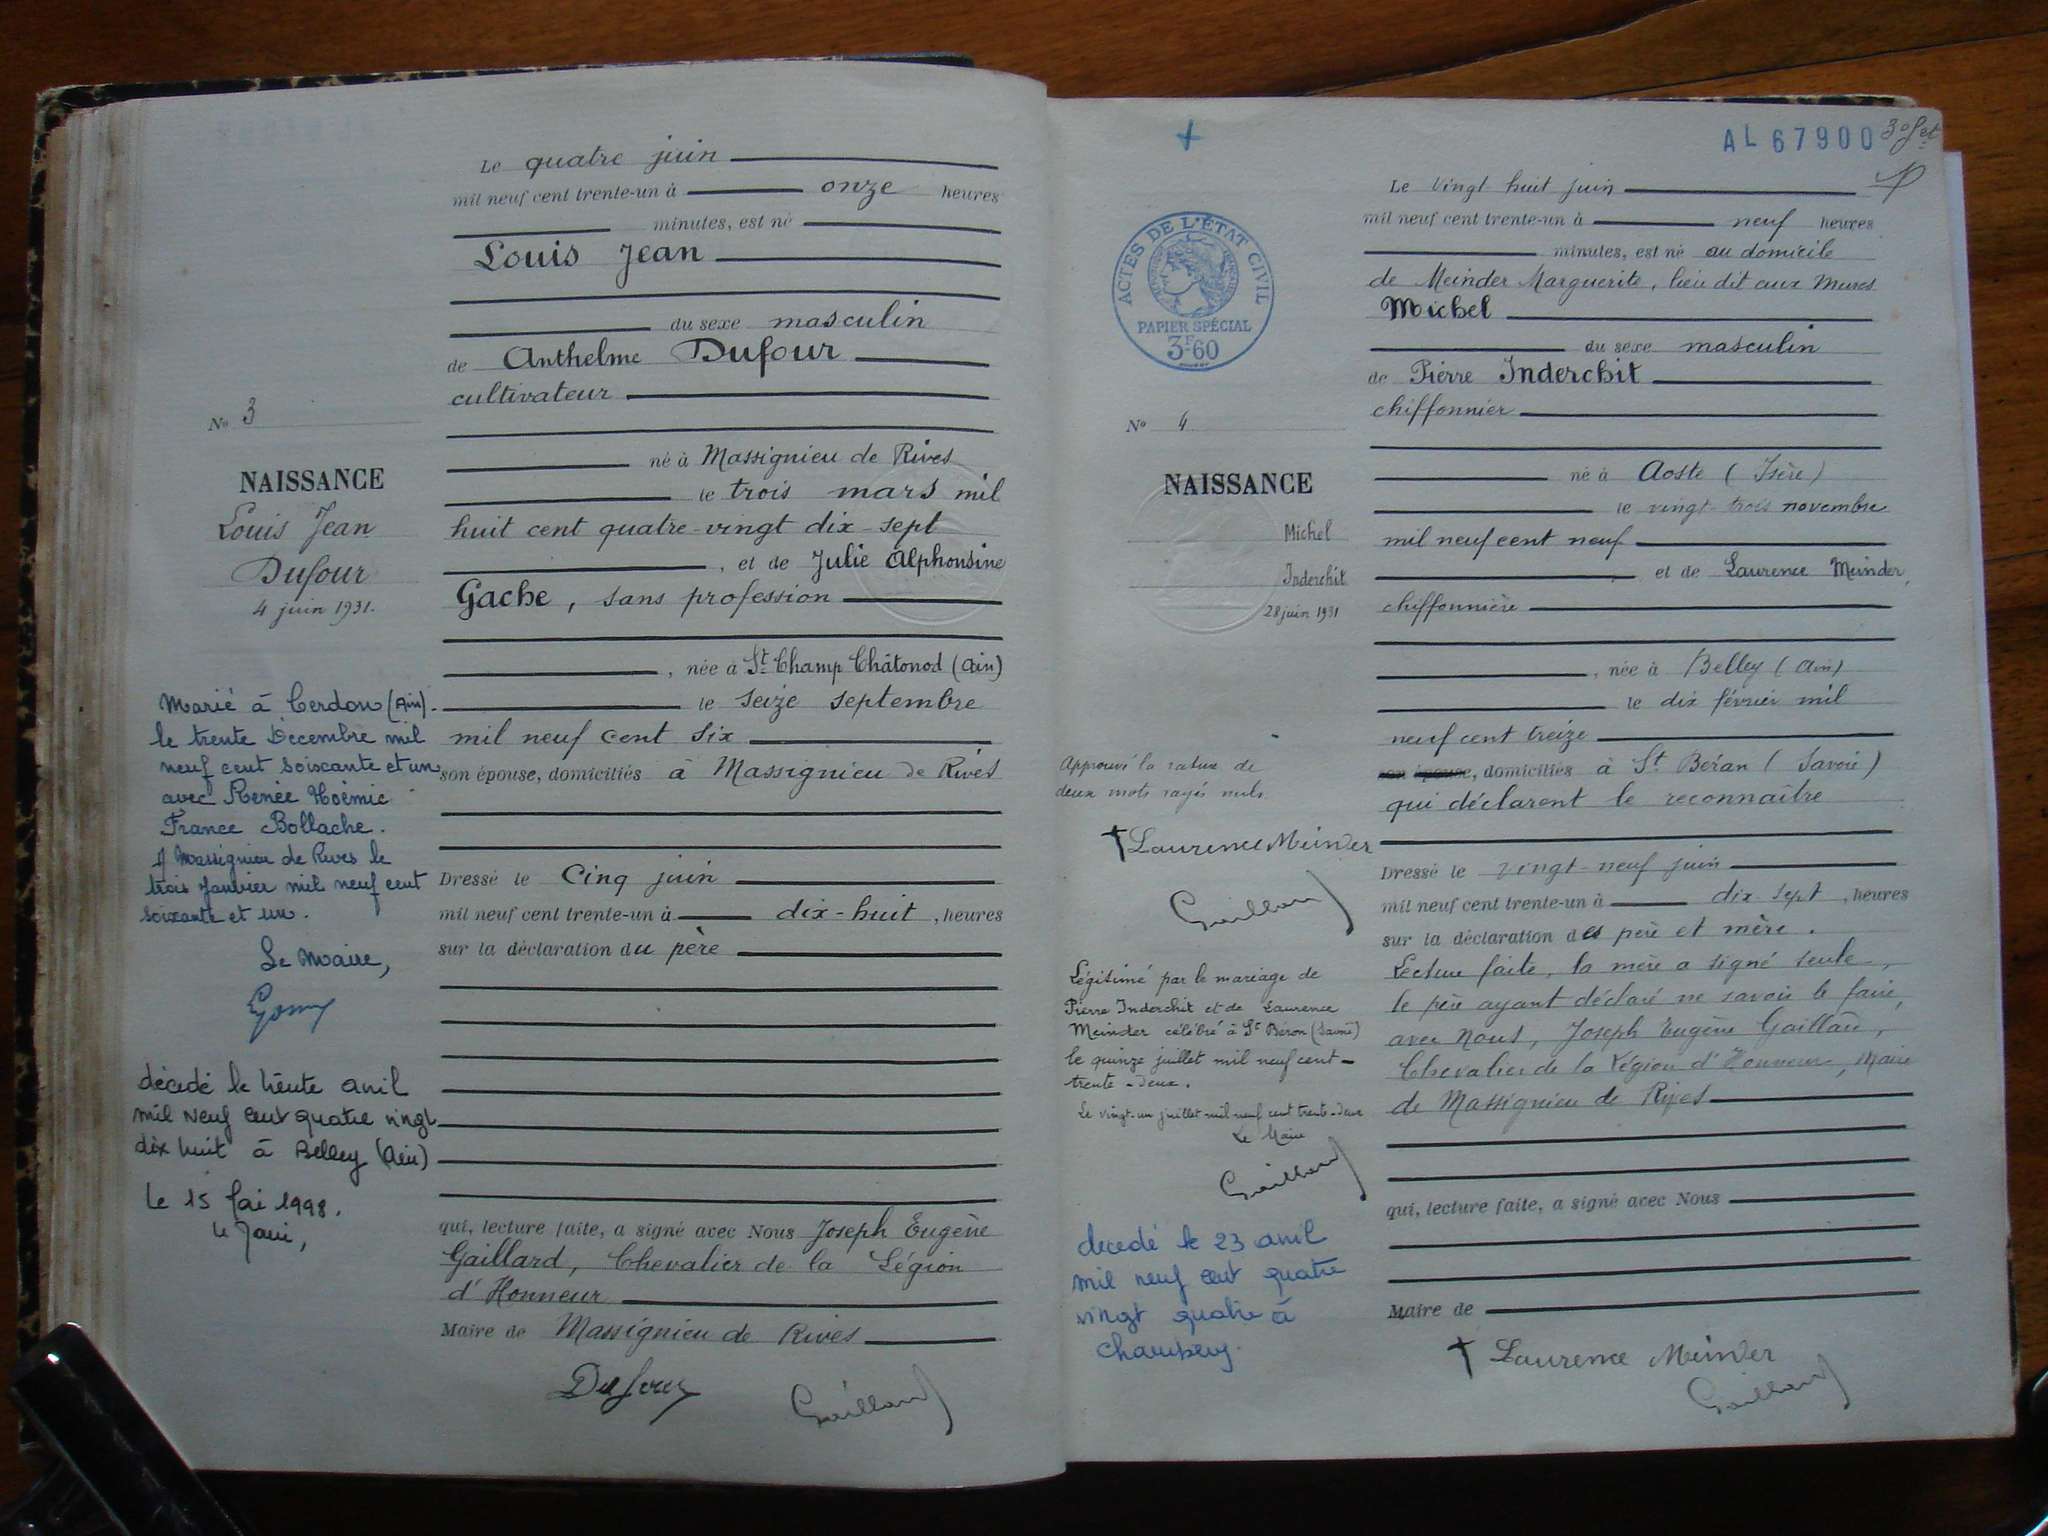 Le quatre juin
mil neuf cent trente-un à onze heures
minutes, est né
Louis Jean
du sexe masculin
de Anthelme Dufour
cultivateur
né à Massignieu de Rives
le trois mars mil
huit cent quatre-vingt dix-sept
, et de Julie Alphonsine
Gache, sans profession
, née à St Champ Châtonod (Ain)
le seize septembre
mil neuf cent six
son épouse, domiciliés à Massignieu de Rives
Dressé le Cinq juin
mil neuf cent trente-un à dix-huit, heures
sur la déclaration du père
qui, lecture faite, a signé avec Nous Joseph Eugène
Gaillard, Chevalier de la Légion
d'Honneur
Maire de Massignieu de Rives
Dufour
Gaillard
No 3
NAISSANCE
Louis Jean
Dufour
4 juin 1931.
Marié à Cerdon (Ain).
le trente Décembre mil
neuf cent soixante et un
avec Renée Noémie
France Bollache.
A Massignieu de Rives le
trois Janvier mil neuf cent
soixante et un.
Le Maire,
décédé le trente avril
mil neuf cent quatre vingt
dix huit à Belley (Ain)
Le 15 Mai 1998.
le Maire,
AL 67900
Le vingt huit juin
mil neuf cent trente-un à neuf heures
minutes, est né au domicile
de Meinder Marguerite, lieu dit aux Mures
Michel
du sexe masculin
de Pierre Inderchit
chiffonnier
né à Aoste (Isère)
le vingt-trois novembre
mil neuf cent neuf
, et de Laurence Meinder,
chiffonnière
, née à Belley (Ain)
le dix février mil
neuf cent treize
son épouse, domiciliés à St Béran (Savoie)
qui déclarent le reconnaître
Dressé le vingt-neuf juin
mil neuf cent trente-un à dix sept, heures
sur la déclaration des père et mère.
Lecture faite, la mère a signé seule,
le père ayant déclaré ne savoir le faire,
avec Nous, Joseph Eugène Gaillard,
Chevalier de la Légion d'Honneur, Maire
de Massignieu de Rives
qui, lecture faite, a signé avec Nous
Maire de
Laurence Meinder
Gaillard
ACTES DE L'ÉTAT CIVIL
PAPIER SPÉCIAL
3F60
No 4
NAISSANCE
Michel
Inderchit
28 juin 1931
Approuvé la rature de
deux mots rayés nuls.
Laurence Meinder
Gaillard
Légitimé par le mariage de
Pierre Inderchit et de Laurence
Meinder célébré à St Béron (Savoie)
le quinze juillet mil neuf cent-
trente-deux.
Le vingt-un juillet mil neuf cent trente-deux
Le Maire
Gaillard
décédé le 23 avril
mil neuf cent quatre
vingt quatre à
Chambéry.